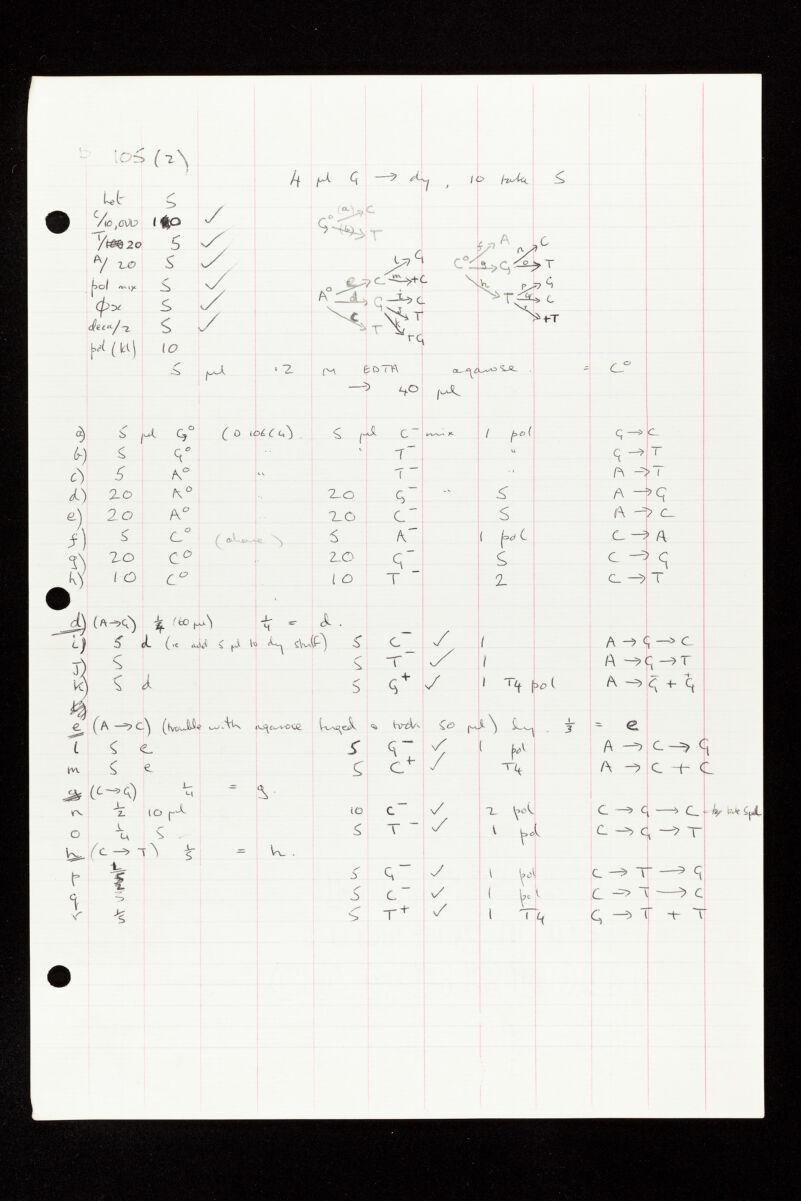 D 105 (2)
4 µl G → dry, 10 take 5
hot 5
C/10,000 10 ✓
T/20 5 ✓
A/20 5 ✓
pol mix 5 ✓
φx 5 ✓
deca/2 5 ✓
pol (kl) 10
G° (a)→ C
(b)→ T
A° e→ C l→ G
m→ +C
d→ G i→ C
j→ T
k→ +G
c→ T
C° f→ A
g→ G n→ C
o→ T
h→ T p→ G
q→ C
r→ +T
5 µl ·2 M EDTA agarose. = C°
→ 40 µl
a) 5 µl G° (D 106(4)) 5 µl C⁻ mix 1 pol G → C
b) 5 G° " T⁻ " G → T
c) 5 A° " T⁻ " A → T
d) 20 A° " 20 G⁻ " 5 A → G
e) 20 A° 20 C⁻ 5 A → C
f) 5 C° (above) 5 A⁻ 1 pol C → A
g) 20 C° 20 G⁻ 5 C → G
h) 10 C° 10 T⁻ 2 C → T
d) (A→G) ¼ (60 µl) ¼ = d.
i) 5 d (ie add 5 µl to dry stuff) 5 C⁻ ✓ 1 A → G → C
j) 5 5 T⁻ ✓ 1 A → G → T
k) 5 d 5 G⁺ ✓ 1 T4 pol A → G⁻ + G⁺
e (A → C) (trouble with agarose & took 50 µl) dry. ⅓ = e
l 5 e 5 G⁻ ✓ 1 pol A → C → G
m 5 e 5 C⁺ ✓ T4 A → C + C
g (C→G) ¼ = g.
n ½ 10 µl 10 C⁻ ✓ 2 pol C → G → C take 5 µl
o ¼ 5 5 T⁻ ✓ 1 pol C → G → T
h (C → T) ⅕ = h.
p ⅕ 5 G⁻ ✓ 1 pol C → T → G
q 5 5 C⁻ ✓ 1 pol C → T → C
r ⅕ 5 T⁺ ✓ 1 T4 G → T + T